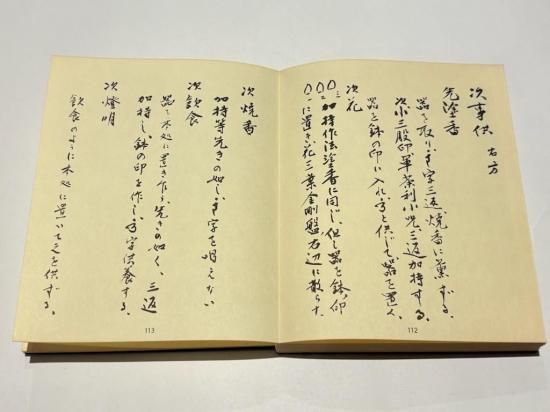 次事供 右方
先塗香
器を取り 字三返焼香に薫ずる。
次小三股印軍荼利小咒三返加持する。
器を鉢の印に入れ 字を供じて器を置く。
次花
加持作法塗香に同じ、但し器を鉢印
に置き、花三葉金剛盤右辺に散らす。
112
次焼香
加持等先きの如し 字を唱えない
次飲食
器を本処に置き乍ら先きの如く、三返
加持し、鉢の印を作し 字供養する。
次燈明
飲食のように本処に置いて之を供ずる。
113